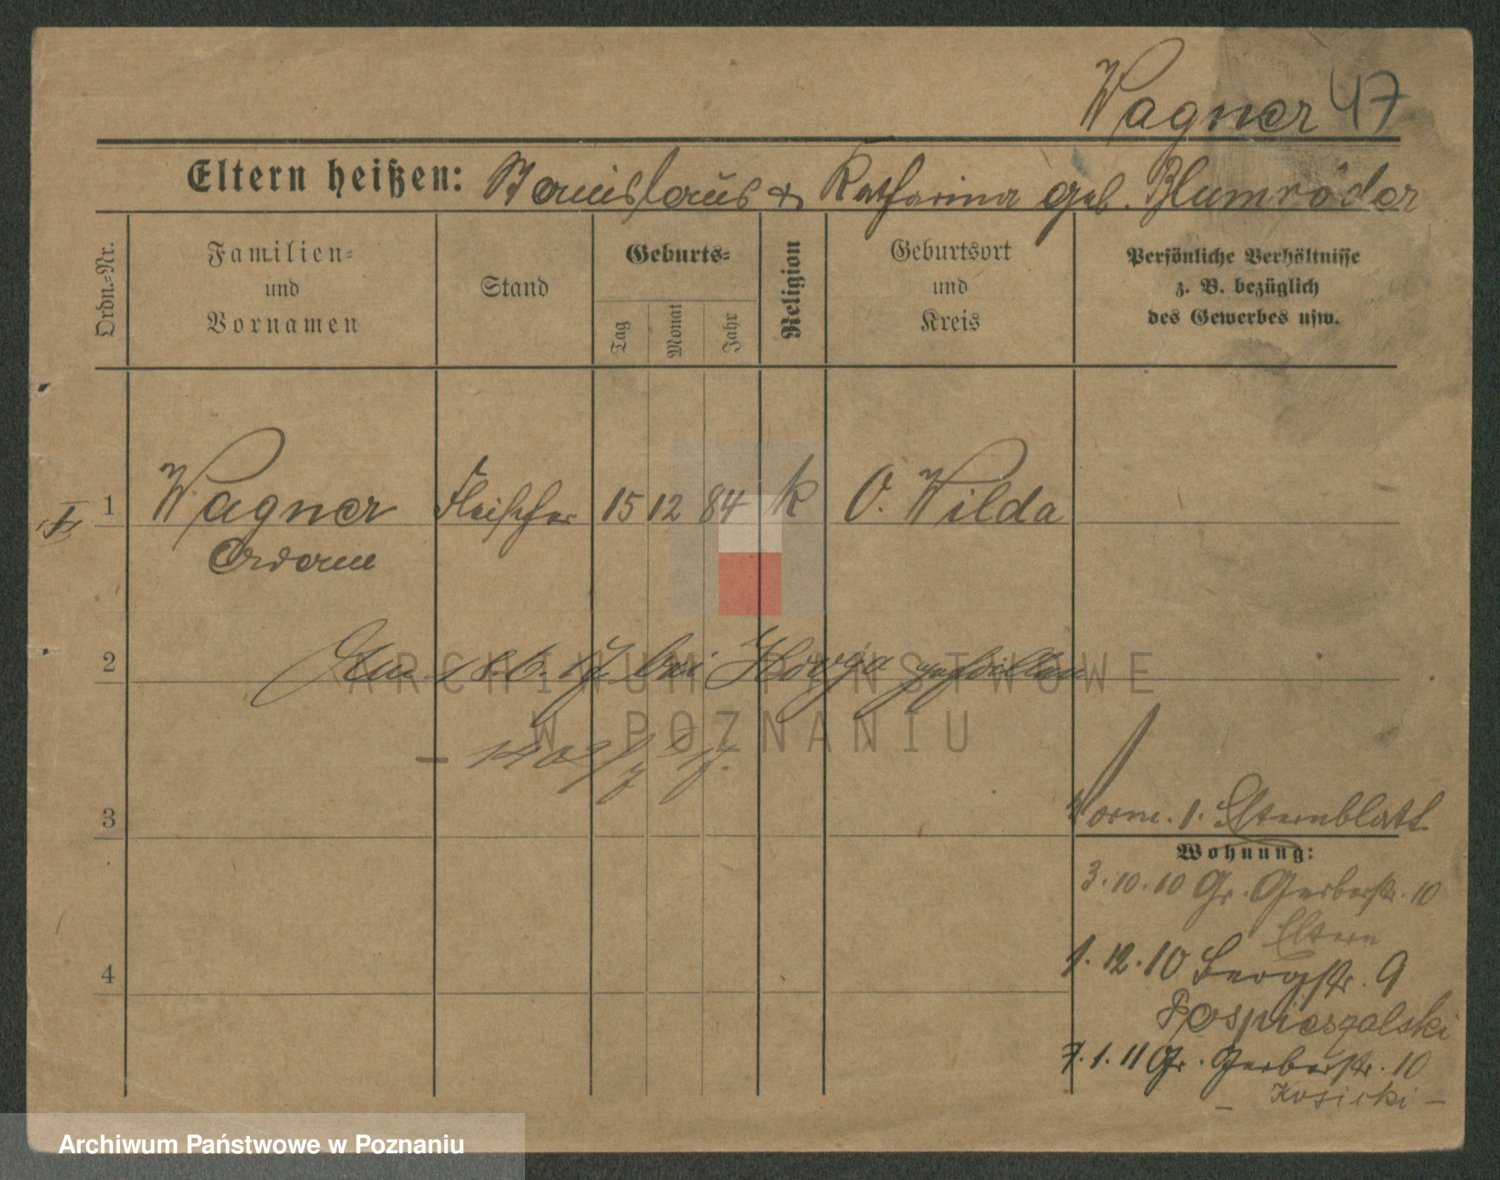 Wagner 47
Eltern heißen: Stanislaus & Katharina geb. Blumröder
Ordn.=Nr.
Familien= und Vornamen
Stand
Geburts=
Tag
Monat
Jahr
Religion
Geburtsort und Kreis
Persönliche Verhältnisse z. B. bezüglich des Gewerbes usw.
I 1 Wagner Fleischer 15 12 84 k O. Wilda
Adam
2 Am 18.6. 17 bei gefallen
ARCHIWUM PAŃSTWOWE
W POZNANIU
3
Vorm. s. Elternblatt
Wohnung:
3.10.10 Gr. Gerberstr. 10
Eltern
4 1.12.10 Bergstr. 9
Pospieszalski
7.1.11 Gr. Gerberstr. 10
– Kosicki –
Archiwum Państwowe w Poznaniu